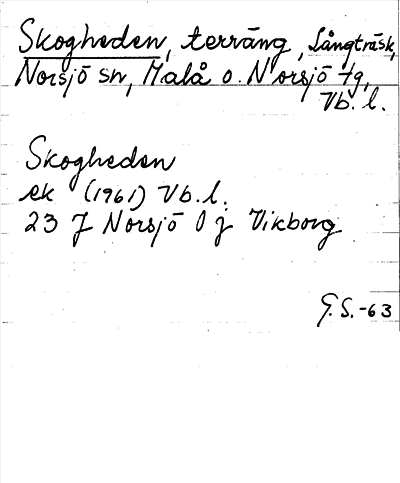 Skogheden, terräng, Långträsk,
Norsjö sn, Malå o. Norsjö tg,
Vb. l.
Skogheden
ek (1961) Vb. l.
23 J Norsjö 0 j Vikborg
G. S. -63